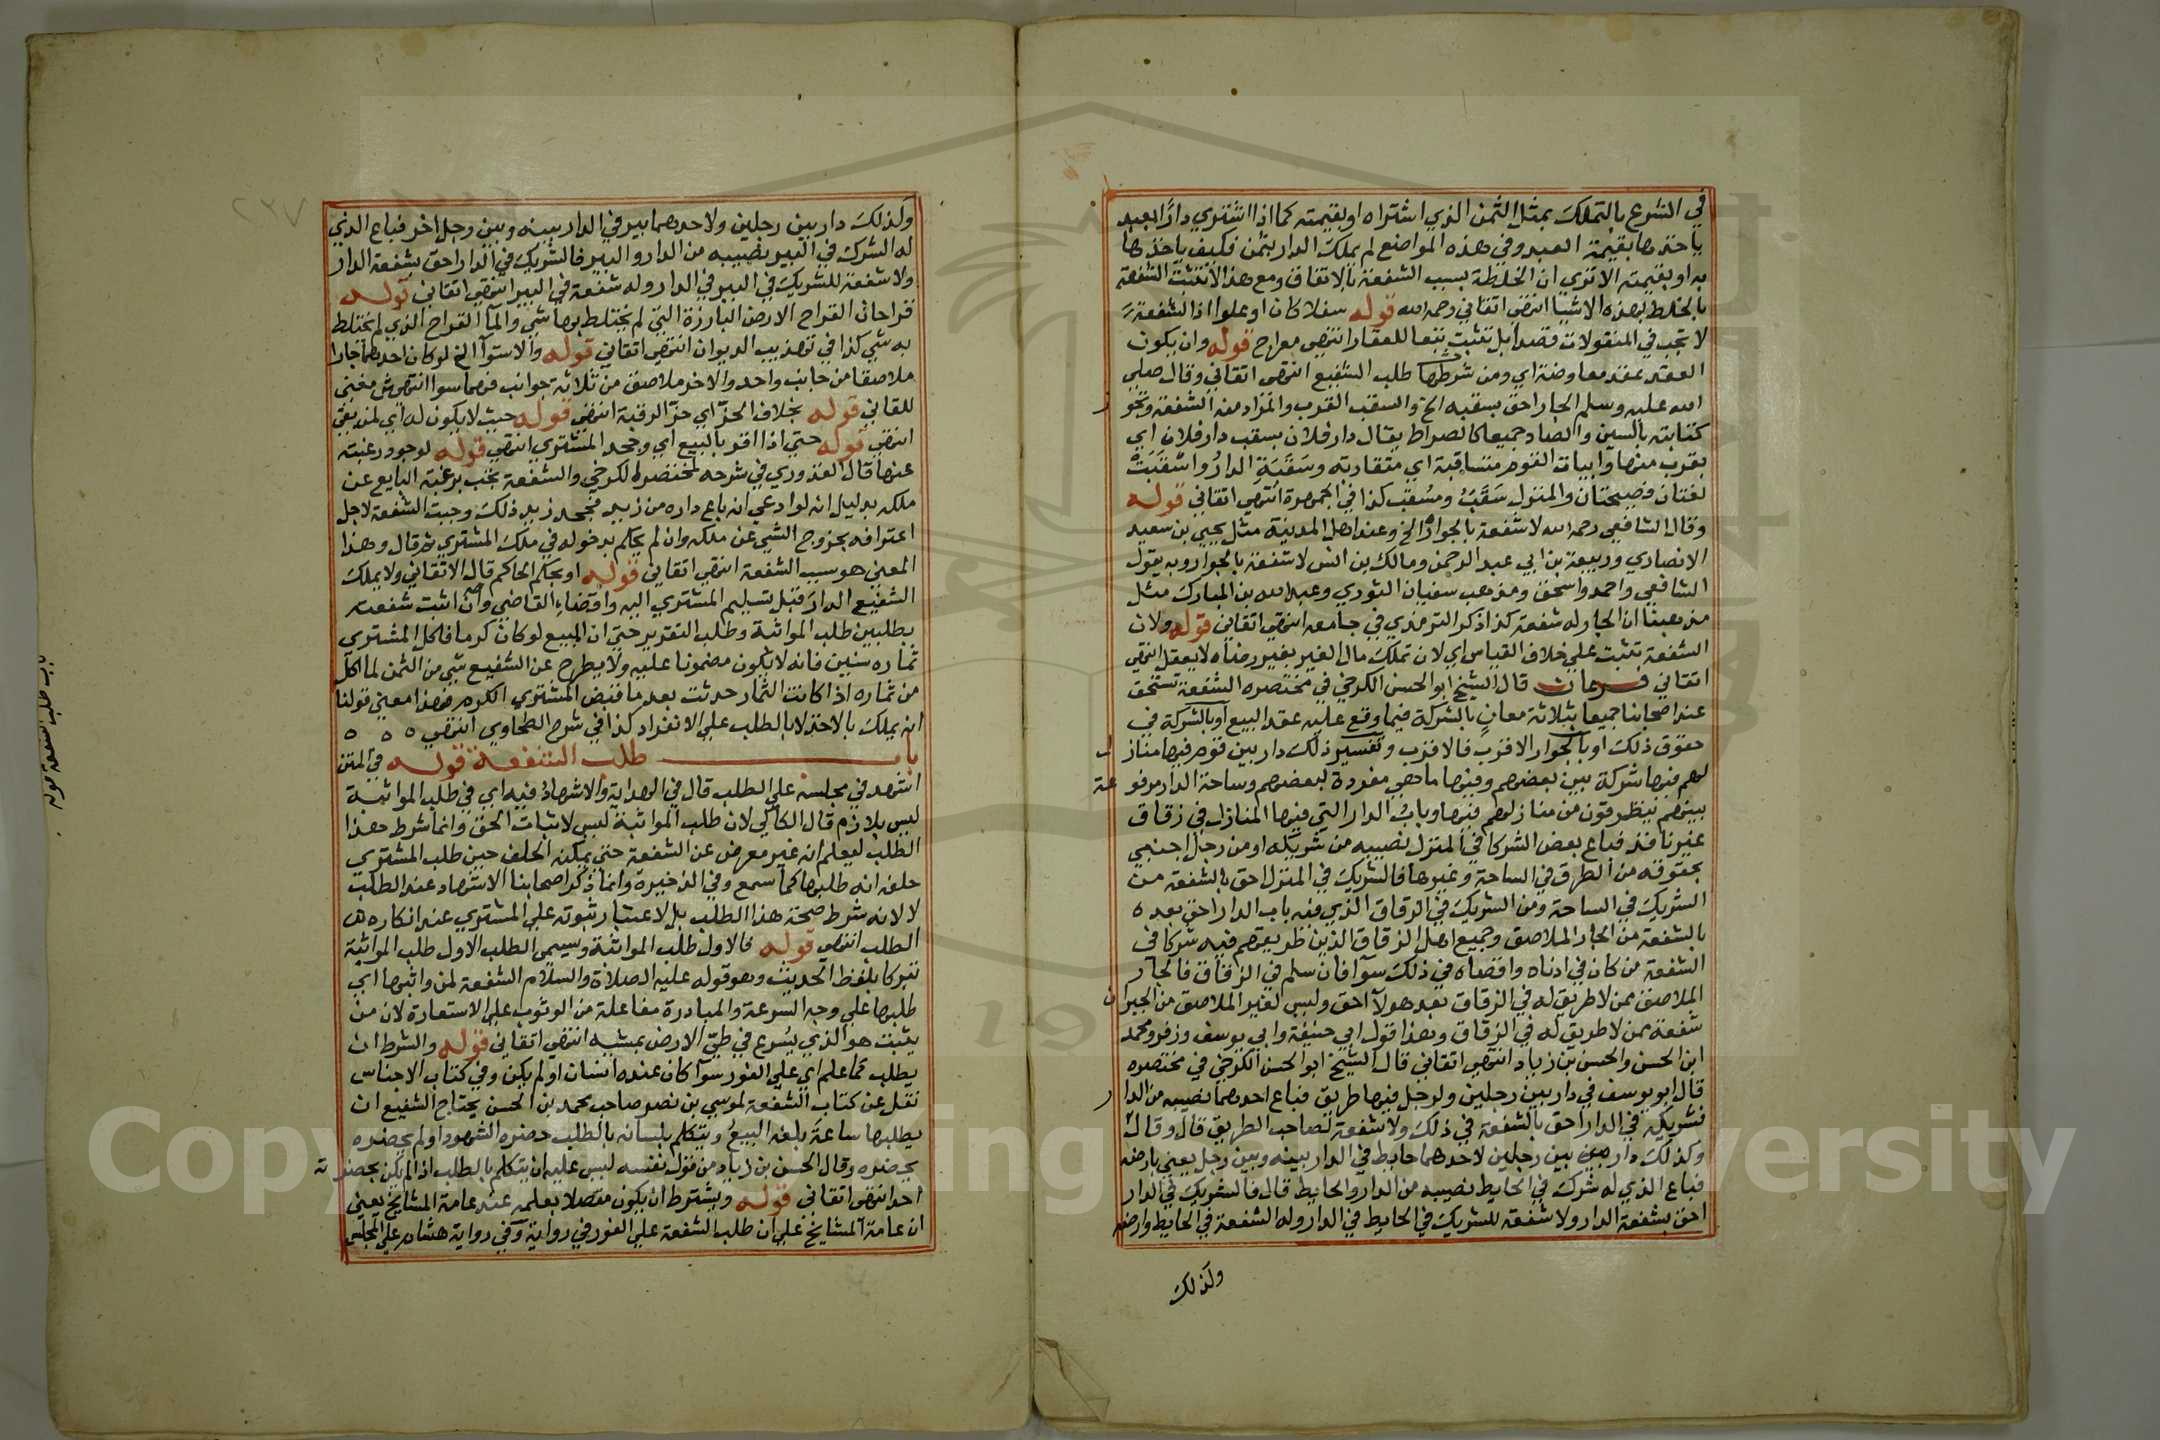 في الشرع بالتملك بمثل الثمن الذي اشتراه او بقيمته كما اذا اشتري دارا بعبد
ياخذها بقيمة العبد وفي هذه المواضع لم يملك الدار بثمن فكيف ياخذها
به او بقيمته الا تري ان الخلطة بسبب الشفعة بالاتفاق ومع هذا لا تثبت الشفعة
بالخلط بهذه الاشيا انتهي اتقاني رحمه الله قوله سفلا كان او علوا اذ الشفعة
لا تجب في المنقولات قصدا بل تثبت تبعا للعقار انتهي معراج قوله وان يكون
العقد عقد معاوضة اي ومن شرطها طلب الشفيع انتهي اتقاني وقال صلي
الله عليه وسلم الجار احق بسقبه الخ والسقب القرب والمراد منه الشفعة وتجو
ز
كتابته بالسين والصاد جميعا كالصراط يقال دار فلان بسقب دار فلان اي
بقرب منها وابيات القوم متساقبة اي متقاربة وسقبت الدار واسقبت
لغتان فصيحتان والمنزل سقب ومسقب كذا في الجمهرة انتهي اتقاني قوله
وقال الشافعي رحمه الله لا شفعة بالجوار الخ وعند اهل المدينة مثل يحيي بن سعيد
الانصاري وربيعة بن ابي عبد الرحمن ومالك بن انس لا شفعة بالجوار وبه يقول
الشافعي واحمد واسحق ومذهب سفيان الثوري وعبد الله بن المبارك مثل
مذهبنا ان الجار له شفعة كذا ذكر الترمذي في جامعه انتهي اتقاني قوله ولان
الشفعة تثبت علي خلاف القياس اي لان تملك مال الغير بغير رضاه لا يعقل انتهي
اتقاني فرعان قال الشيخ ابو الحسن الكرخي في مختصره الشفعة تستحق
عند اصحابنا جميعا بثلاثة معان بالشركة فيما وقع عليه عقد البيع او بالشركة في
حقوق ذلك او بالجوار الاقرب فالاقرب وتفسير ذلك دار بين قوم فيها مناز
ل
لهم فيها شركة بين بعضهم وفيها ما هي مفردة لبعضهم وساحة الدار مرفو
عة
بينهم يتطرقون من منازلهم فيها وباب الدار التي فيها المنازل في زقاق
غير نافذ فباع بعض الشركا في المنزل نصيبه من شريكه او من رجل اجنبي
بحقوقه من الطرق في الساحة وغيرها فالشريك في المنزل احق بالشفعة من
الشريك في الساحة ومن الشريك في الزقاق الذي فيه باب الدار احق بعده
بالشفعة من الجار الملاصق وجميع اهل الزقاق الذين طريقهم فيه شركا في
الشفعة من كان في ادناه واقصاه في ذلك سوا فان سلم في الزقاق فالجار
الملاصق ممن لا طريق له في الزقاق بعد هولا احق وليس لغير الملاصق من الجيرا
ن
شفعة ممن لا طريق له في الزقاق وهذا قول ابي حنيفة وابي يوسف وزفر ومحمد
ابن الحسن والحسن بن زياد انتهي اتقاني قال الشيخ ابو الحسن الكرخي في مختصره
قال ابو يوسف في دار بين رجلين ولرجل فيها طريق فباع احدهما نصيبه من الدا
ر
فشريكه في الدار احق بالشفعة في ذلك ولا شفعة لصاحب الطريق قال وقال
وكذلك دار بين رجلين لاحدهما حايط في الدار بينه وبين رجل يعني بارضه
فباع الذي له شرك في الحايط نصيبه من الدار والحايط قال فالشريك في الدار
احق بشفعة الدار ولا شفعة للشريك في الحايط في الدار وله الشفعة في الحايط وارضه
ولذلك
٢٣٧
وكذلك دار بين رجلين ولاحدهما بير في الدار بينه وبين رجل اخر فباع الذي
له الشرك في البير نصيبه من الدار والبير فالشريك في الدار احق بشفعة الدار
ولا شفعة للشريك في البير في الدار وله شفعة في البير انتهي اتقاني قوله
قراحان القراح الارض البارزة التي لم يختلط بها شي والما القراح الذي لم يختلط
به شي كذا في تهذيب الديوان انتهي اتقاني قوله والاستوا الخ لو كان احدهما جارا
ملاصقا من جانب واحد والاخر ملاصق من ثلاثة جوانب فهما سوا انتهي ش مغني
للقاني قوله بخلاف الحر اي حر الرقبة انتهي قوله حيث لا يكون له اي لمن بقي
انتهي قوله حتي اذا اقر بالبيع اي وجحد المشتري انتهي قوله لوجوده رغبته
عنها قال القدوري في شرحه لمختصر الكرخي والشفعة تجب برغبة البايع عن
ملكه بدليل انه لو ادعي انه باع داره من زيد فجحد زيد ذلك وجبت الشفعة لاجل
اعترافه بخروج الشي عن ملكه وان لم يحكم بدخوله في ملك المشتري ثم قال وهذا
المعني هو سبب الشفعة انتهي اتقاني قوله او بحكم الحاكم قال الاتقاني ولا يملك
الشفيع الدار قبل تسليم المشتري اليه واقضاء القاضي وان اثبت شفعته
بطلبين طلب المواثبة وطلب التقرير حتي ان المبيع لو كان كرما فاكل المشتري
ثماره سنين فانه لا يكون مضمونا عليه ولا يطرح عن الشفيع شي من الثمن لما اكل
من ثماره اذا كانت الثمار حدثت بعد ما قبض المشتري الكرم فهذا معني قولنا
انه يملك بالاخذ لا بالطلب علي الانفراد كذا في شرح الطحاوي انتهي ٥ ٥ ٥
باب طلب الشفعة قوله في المتن
اشهد في مجلسه علي الطلب قال في الهداية والاشهاد فيه اي في طلب المواثبة
ليس بلازم قال الكاكي لان طلب المواثبة ليس لاثبات الحق وانما شرط هذا
الطلب ليعلم انه غير معرض عن الشفعة حتي يمكنه الحلف حين طلب المشتري
حلفه انه طلبها كما سمع وفي الذخيرة وانما ذكر اصحابنا الاشهاد عند الطلب
لا لانه شرط صحة هذا الطلب بل لاعتبار ثبوته علي المشتري عند انكاره هذا
الطلب انتهي قوله فالاول طلب المواثبة وسيمي الطلب الاول طلب المواثبة
تبركا بلفظ الحديث وهو قوله عليه الصلاة والسلام الشفعة لمن واثبها اي
طلبها علي وجه السرعة والمبادرة مفاعلة من الوثوب علي الاستعارة لان من
يثبت هو الذي يسرع في طي الارض بمشيه انتهي اتقاني قوله والشرط ان
يطلب كما علم اي علي الفور سوا كان عنده انسان او لم يكن وفي كتاب الاجناس
نقل عن كتاب الشفعة لموسي بن نصر صاحب محمد بن الحسن يحتاج الشفيع ان
يطلبها ساعة بلغه البيع ويتكلم بلسانه بالطلب حضره الشهود او لم يحضره
يحضره وقال الحسن بن زياد من قول نفسه ليس عليه ان يتكلم بالطلب اذا لم يكن بحضر
ته
احد انتهي اتقاني قوله ويشترط ان يكون متصلا بعلمه عند عامة المشايخ يعني
ان عامة المشايخ علي ان طلب الشفعة علي الفور في رواية وفي رواية هشام علي المجلس
باب طلب الشفعة قوله